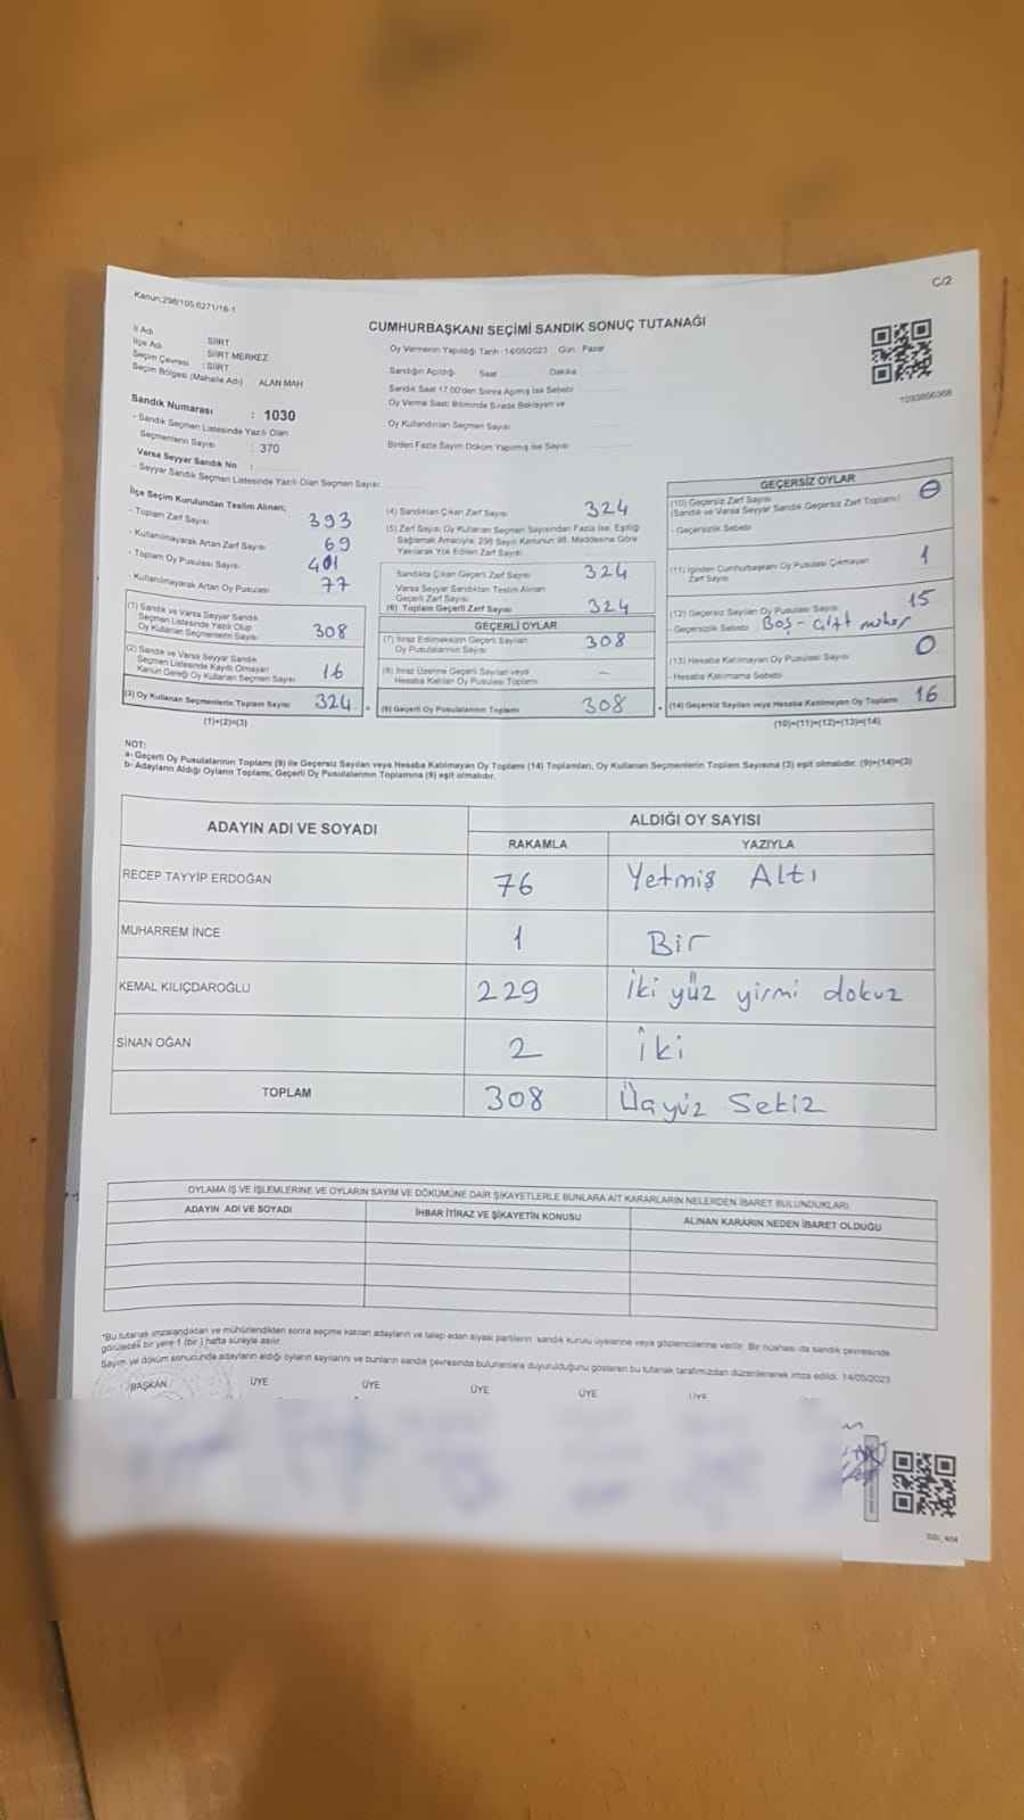 C/2
Kanun:298/105 6271/16-1
CUMHURBAŞKANI SEÇİMİ SANDIK SONUÇ TUTANAĞI
İl Adı : SİİRT
İlçe Adı : SİİRT MERKEZ
Seçim Çevresi : SİİRT
Seçim Bölgesi (Mahalle Adı) ALAN MAH
Sandık Numarası : 1030
- Sandık Seçmen Listesinde Yazılı Olan
Seçmenlerin Sayısı : 370
Varsa Seyyar Sandık No :
- Seyyar Sandık Seçmen Listesinde Yazılı Olan Seçmen Sayısı:
Oy Vermenin Yapıldığı Tarih : 14/05/2023 Gün : Pazar
Sandığın Açıldığı Saat Dakika
Sandık Saat 17.00'den Sonra Açılmış İse Sebebi
Oy Verme Saati Bitiminde Sırada Bekleyen ve
Oy Kullandırılan Seçmen Sayısı
Birden Fazla Sayım Döküm Yapılmış İse Sayısı
İlçe Seçim Kurulundan Teslim Alınan;
- Toplam Zarf Sayısı 393
- Kullanılmayarak Artan Zarf Sayısı 69
- Toplam Oy Pusulası Sayısı 401
- Kullanılmayarak Artan Oy Pusulası 77
(1) Sandık ve Varsa Seyyar Sandık
Seçmen Listesinde Yazılı Olup
Oy Kullanan Seçmenlerin Sayısı 308
(2) Sandık ve Varsa Seyyar Sandık
Seçmen Listesinde Kayıtlı Olmayan
Kanun Gereği Oy Kullanan Seçmen Sayısı 16
(3) Oy Kullanan Seçmenlerin Toplam Sayısı 324
(1)+(2)=(3)
(4) Sandıktan Çıkan Zarf Sayısı 324
(5) Zarf Sayısı Oy Kullanan Seçmen Sayısından Fazla İse, Eşitliği
Sağlamak Amacıyla, 298 Sayılı Kanunun 98. Maddesine Göre
Yakılarak Yok Edilen Zarf Sayısı
Sandıkta Çıkan Geçerli Zarf Sayısı 324
Varsa Seyyar Sandıktan Teslim Alınan
Geçerli Zarf Sayısı
(6) Toplam Geçerli Zarf Sayısı 324
GEÇERLİ OYLAR
(7) İtiraz Edilmeksizin Geçerli Sayılan
Oy Pusulalarının Sayısı 308
(8) İtiraz Üzerine Geçerli Sayılan veya
Hesaba Katılan Oy Pusulası Toplamı –
(9) Geçerli Oy Pusulalarının Toplamı 308
GEÇERSİZ OYLAR
(10) Geçersiz Zarf Sayısı
(Sandık ve Varsa Seyyar Sandık Geçersiz Zarf Toplamı)
- Geçersizlik Sebebi
(11) İçinden Cumhurbaşkanı Oy Pusulası Çıkmayan
Zarf Sayısı 1
(12) Geçersiz Sayılan Oy Pusula Sayısı 15
Geçersizlik Sebebi Boş - çift mühür
(13) Hesaba Katılmayan Oy Pusulası Sayısı 0
- Hesaba Katılmama Sebebi
(14) Geçersiz Sayılan veya Hesaba Katılmayan Oy Toplamı 16
(10)+(11)+(12)+(13)=(14)
NOT:
a- Geçerli Oy Pusulalarının Toplamı (9) ile Geçersiz Sayılan veya Hesaba Katılmayan Oy Toplamı (14) Toplamları, Oy Kullanan Seçmenlerin Toplam Sayısına (3) eşit olmalıdır. (9)+(14)=(3)
b- Adayların Aldığı Oyların Toplamı, Geçerli Oy Pusulalarının Toplamına (9) eşit olmalıdır.
ADAYIN ADI VE SOYADI ALDIĞI OY SAYISI
RAKAMLA YAZIYLA
RECEP TAYYİP ERDOĞAN 76 Yetmiş Altı
MUHARREM İNCE 1 Bir
KEMAL KILIÇDAROĞLU 229 İki yüz yirmi dokuz
SİNAN OĞAN 2 İki
TOPLAM 308 Üçyüz Sekiz
OYLAMA İŞ VE İŞLEMLERİNE VE OYLARIN SAYIM VE DÖKÜMÜNE DAİR ŞİKAYETLERLE BUNLARA AİT KARARLARIN NELERDEN İBARET BULUNDUKLARI
ADAYIN ADI VE SOYADI İHBAR İTİRAZ VE ŞİKAYETİN KONUSU ALINAN KARARIN NEDEN İBARET OLDUĞU
*Bu tutanak imzalandıktan ve mühürlendikten sonra seçime katılan adayların ve talep eden siyasi partilerin sandık kurulu üyelerine veya gözlemcilerine verilir. Bir nüshası da sandık çevresinde
görülecek bir yere 1 (bir) hafta süreyle asılır.
Sayım ve döküm sonucunda adayların aldığı oyların sayılarını ve bunların sandık çevresinde bulunanlara duyurulduğunu gösteren bu tutanak tarafımızdan düzenlenerek imza edildi. 14/05/2023
BAŞKAN ÜYE ÜYE ÜYE ÜYE ÜYE